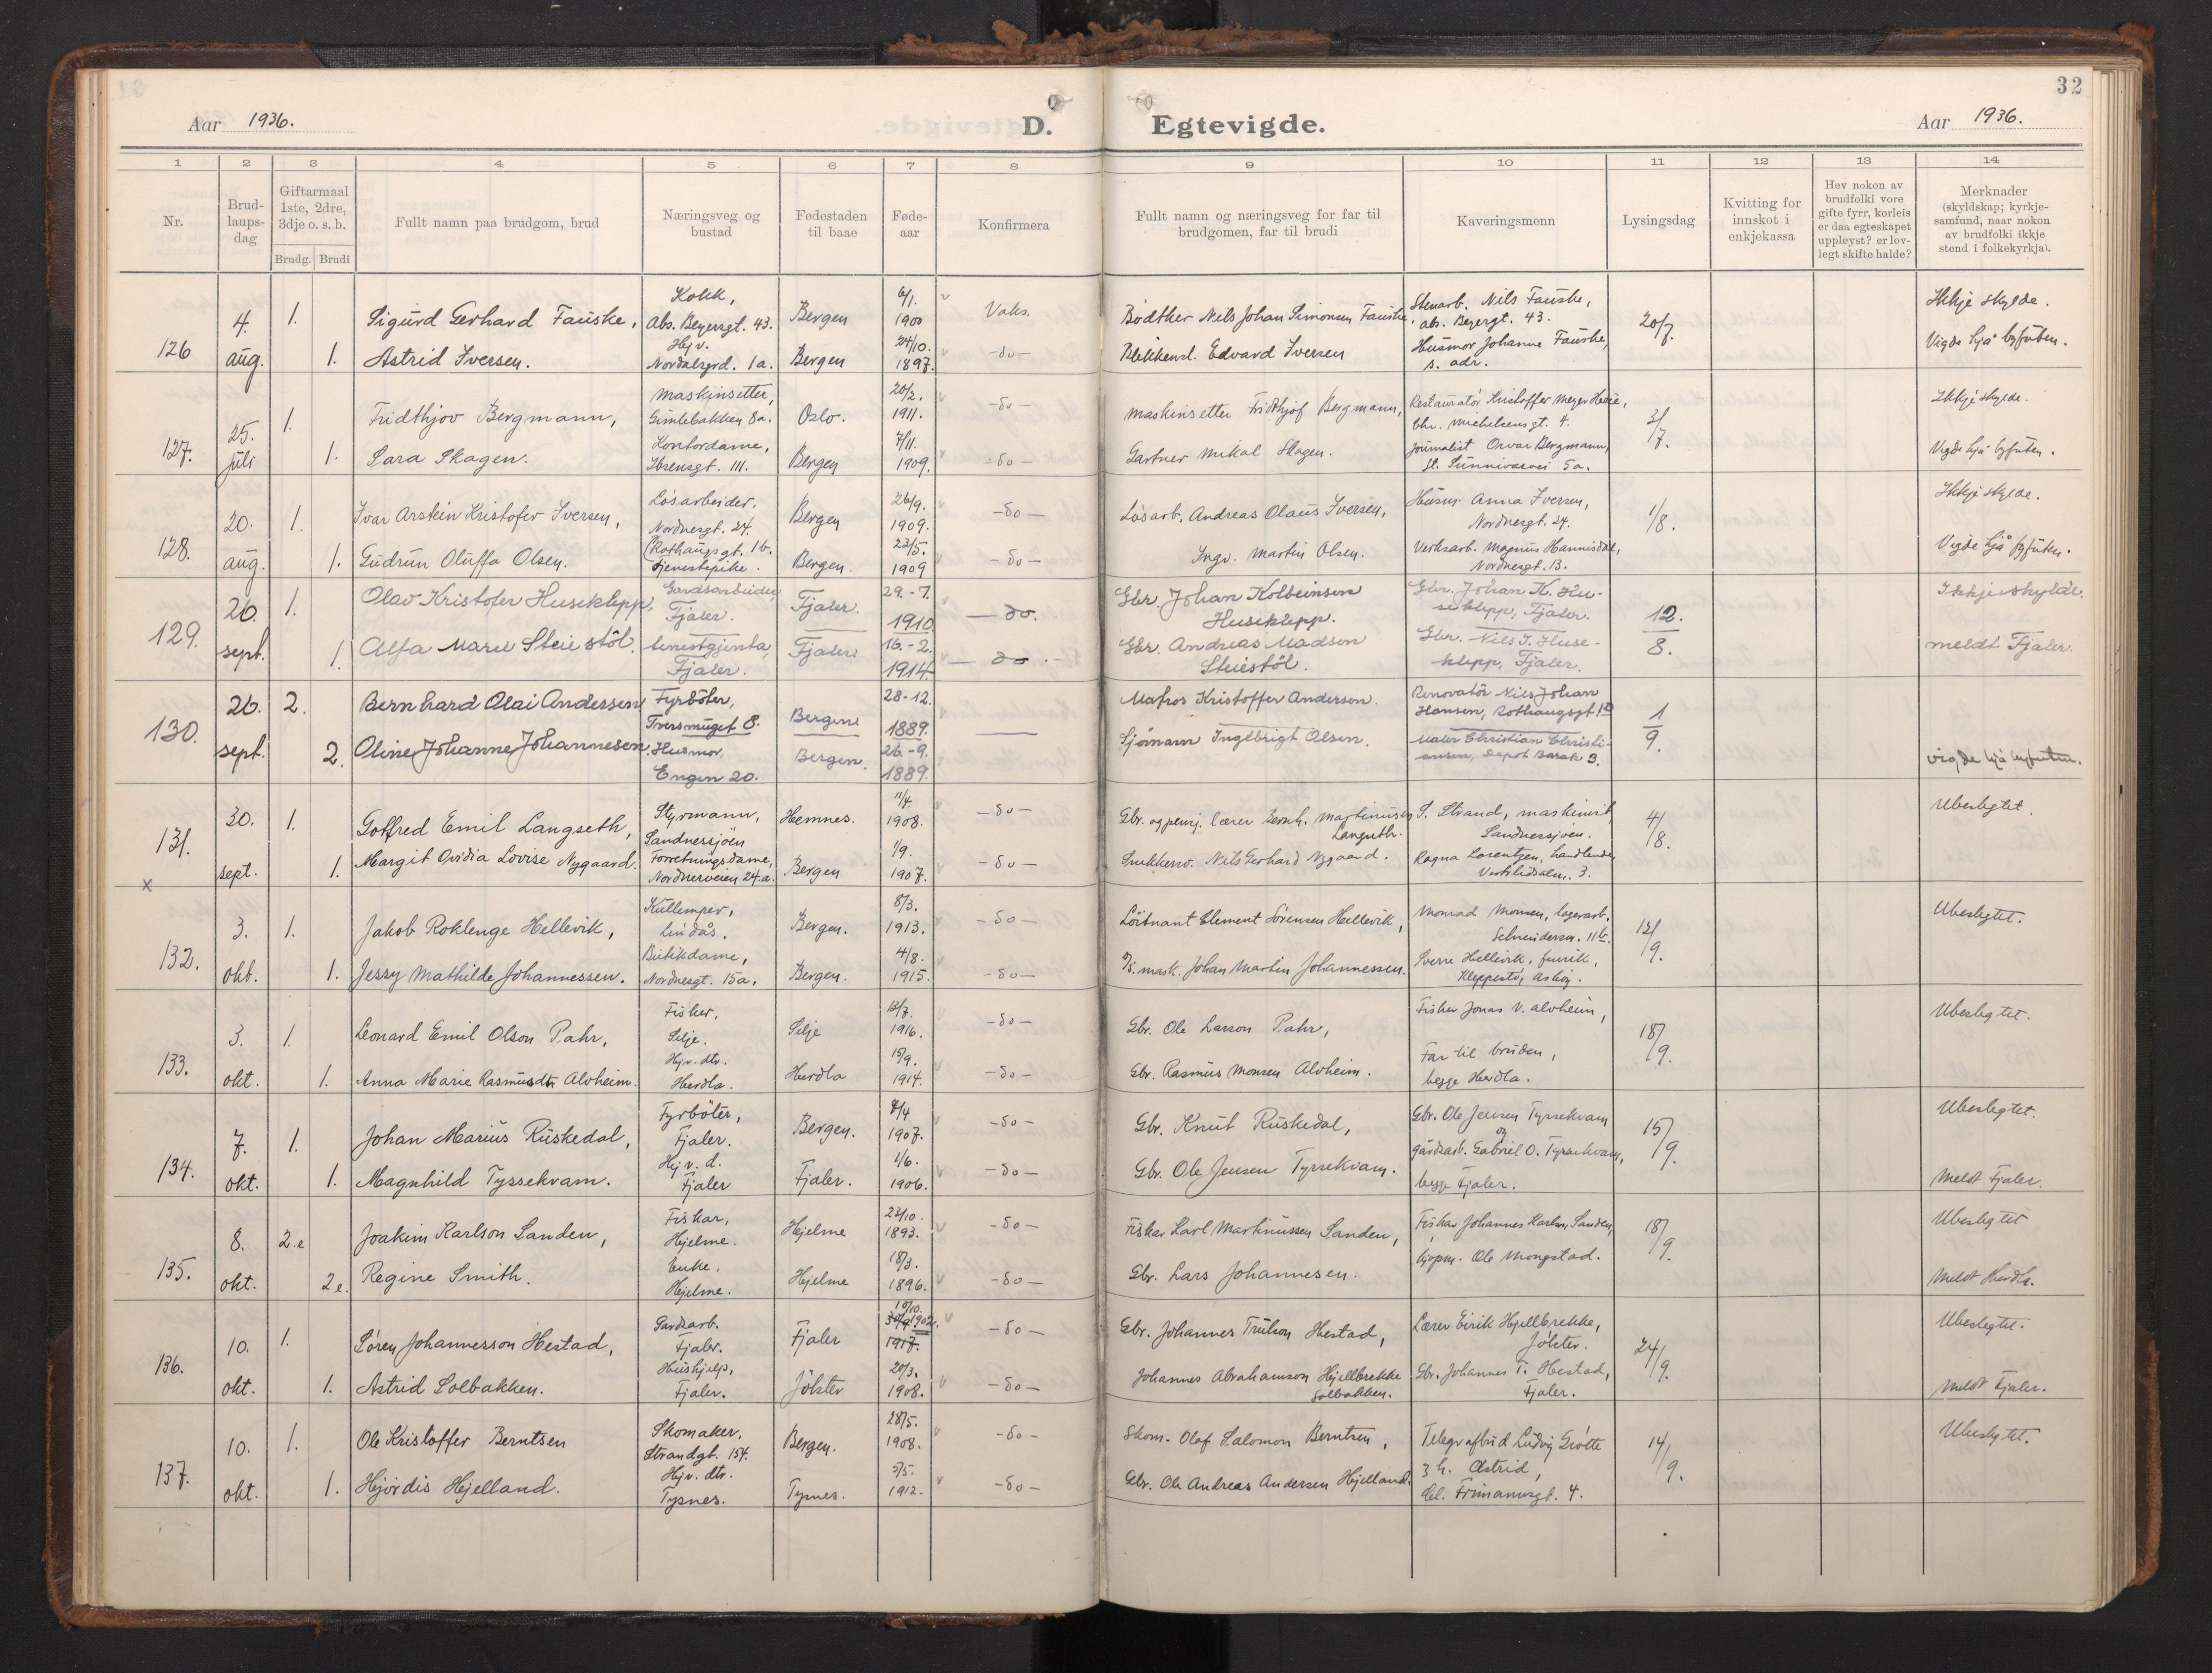 32
Aar 1936. D. Egtevigde. Aar 1936.
1 2 3 4 5 6 7 8 9 10 11 12 13 14
Nr.
Brud-
laups-
dag
Giftarmaal
1ste, 2dre,
3dje o. s. b.
Brudg. Brudi
Fullt namn paa brudgom, brud
Næringsveg og
bustad
Fødestaden
til baae
Føde-
aar
Konfirmera
Fullt namn og næringsveg for far til
brudgomen, far til brudi
Kaveringsmenn
Lysingsdag
Kvitting for
innskot i
enkjekassa
Hev nokon av
brudfolki vore
gifte fyrr, korleis
er daa egteskapet
uppløyst? er lov-
legt skifte halde?
Merknader
(skyldskap; kyrkje-
samfund, naar nokon
av brudfolki ikkje
stend i folkekyrkja).
126
4. aug.
1. Sigurd Gerhard Fauske, Kokk, Abs. Beyersgt. 43. Bergen 6/1. 1900 Vaks. Bødtker Nils Johan Simonsen Fauske, Stenarb. Nils Fauske, abs. Beyergt. 43. 20/7. Ikkje skylde.
1. Astrid Iversen. Hjv. Nordalsgrd. 1a. Bergen 24/10. 1897. -do- Blikkensl. Edvard Iversen Husmor Johanne Fauske, s. adr. Vigde hjå byfuten.
127.
25. juli
1. Fridthjov Bergmann, Maskinsetter, Gimlebakken 8a. Oslo. 20/2. 1911. -do- Maskinsetter Fridthjof Bergmann, Restauratør Kristoffer Meyer Heie, Chr. Michelsensgt. 4. 3/7. Ikkje skylde.
1. Sara Skagen. Kontordame, Ibsensgt. 111. Bergen 7/11. 1909. -do- Gartner Mikal Skagen. Journalist Orvar Bergmann, St. Sunnivasvei 5a. Vigde hjå byfuten.
128.
20. aug.
1. Ivar Arstein Kristofer Iversen, Løsarbeider, Nordnesgt. 24. Bergen 26/9. 1909. -do- Løsarb. Andreas Olaus Iversen, Husm. Anna Iversen, Nordnesgt. 24. 1/8. Ikkje skylde.
1. Gudrun Oluffa Olsen. Rothaugsgt. 1b. Tjenestepike. Bergen. 23/5. 1909 -do- Ingv. Martin Olsen. Verksarb. Magnus Hannisdal, Nordnesgt. 13. Vigde hjå byfuten.
129.
26. sept.
1. Olav Kristofer Huseklepp, Gardsarbeider, Fjaler. Fjaler. 29.-7. 1910 -do. Gbr. Johan Kolbeinson Huseklepp. Gbr. Johan K. Hu-
seklepp, Fjaler. 12./8. Ikkje skylde.
1. Alfa Marie Steiestöl. tenestgjenta, Fjaler. Fjaler 16.-2. 1914 -do.- Gbr. Andreas Madson Steiestöl. Gbr. Nils J. Huse-
klepp, Fjaler. meldt Fjaler.
130.
26. sept.
2. Bernhard Olai Andersen, Fyrböter, Tversmuget 8. Bergen 28-12. 1889. Matros Kristoffer Anderson. Renovatör Nils Johan Hansen, Rothaugsgt 1b 1/9.
2. Oline Johanne Johannesen Husmor, Engen 20. Bergen. 26.-9. 1889. Sjömann Ingebrigt Olsen. Maler Christian Christi-
ansen, Depot Barak 3. vigde hjå byfuten.
131.
x
30. sept.
1. Gotfred Emil Langseth, Styrmann, Sandnessjöen Hemnes. 11/4. 1908. -do- Gbr. og pensj. lærer Bernh. Martinusen Langseth. S. Strand, maskinist, Sandnessjöen. 4/8. Ubeslegtet.
1. Margit Ovidia Lovise Nygaard. Forretningsdame, Nordnesveien 24.a. Bergen 1/9. 1907. -do- Snekkersv. Nils Gerhard Nygaard. Ragna Lorentzen, handlende, Vestlidsalm. 3.
132.
3. okt.
1. Jakob Roklenge Hellevik, Kullemper, Lindås. Bergen. 8/3. 1913. -do- Löitnant Clement Sörensen Hellevik, Monrad Monsen, lagerarb. 12/9. Ubeslegtet.
1. Jessy Mathilde Johannessen. Butikdame, Nordnesgt. 15a. Bergen. 4/8. 1915. -do- mask. Johan Martin Johannessen. Sverre Hellevik, furirk, Kleppestø, Askøy.
133.
3. okt.
1. Leonard Emil Olson Pahr, Fisker, Selje. Selje 1916. -do- Gbr. Ole Larson Pahr, Fisker Jonas V. Alvheim, 18/9. Ubeslegtet.
1. Anna Marie Rasmusdtr Alvheim. Hjv. dtr. Herdla. Herdla 15/9. 1914. -do- Gbr. Rasmus Monsen Alvheim. Far til bruden, begge Herdla.
134.
7. okt.
1. Johan Marius Ruskedal, Fyrböter, Fjaler. Bergen. 1907. -do- Gbr. Knut Ruskedal, Gbr. Ole Jensen Tyssekvam og 15/9. Ubeslegtet.
1. Magnhild Tyssekvam. Hjv. d. Fjaler Fjaler. 1/6. 1906. -do- Gbr. Ole Jensen Tyssekvam. gårdsarb. Gabriel O. Tyssekvam, begge Fjaler. Meldt Fjaler.
135.
8. okt.
2.e Joakim Karlson Sanden, Fiskar, Hjelme. Hjelme 23/10. 1893. -do- Fiskar Karl Martinussen Sanden, Fiskar Johannes Karlsen Sanden, 18/9. Ubeslegtet
2e. Regine Smith. Enke, Hjelme. Hjelme 18/3. 1896. -do- Gbr. Lars Johannesen. kjøpm. Ole Mongstad. Meldt Herdla.
136.
10. okt.
1. Søren Johannesson Hestad, Gardsarb. Fjaler. Fjaler 10/10. 1902. 1917. -do- Gbr. Johannes Trulson Hestad, Lærer Eirik Hjellbrekke, Jølster. 24/9. Ubeslegtet.
1. Astrid Solbakken. Hushjelp, Fjaler. Jölster 20/3. 1908. -do- Johannes Abrahamson Hjellbrekke Solbakken. Gbr. Johannes T. Hestad, Fjaler. Meldt Fjaler.
137.
10. okt.
1. Ole Kristoffer Berntsen Skomaker, Strandgt. 154. Bergen. 28/5. 1908. -do- Skom. Olaf Salomon Berntsen, Telegrafbud Ludvig Grötte 14/9. Ubeslegtet.
1. Hjördis Hjelland. Hjv. dtr. Tysnes. Tysnes. 5/5. 1912. -do- Gbr. Ole Andreas Andersen Hjelland. Astrid, Cl. Frimannsgt. 4.